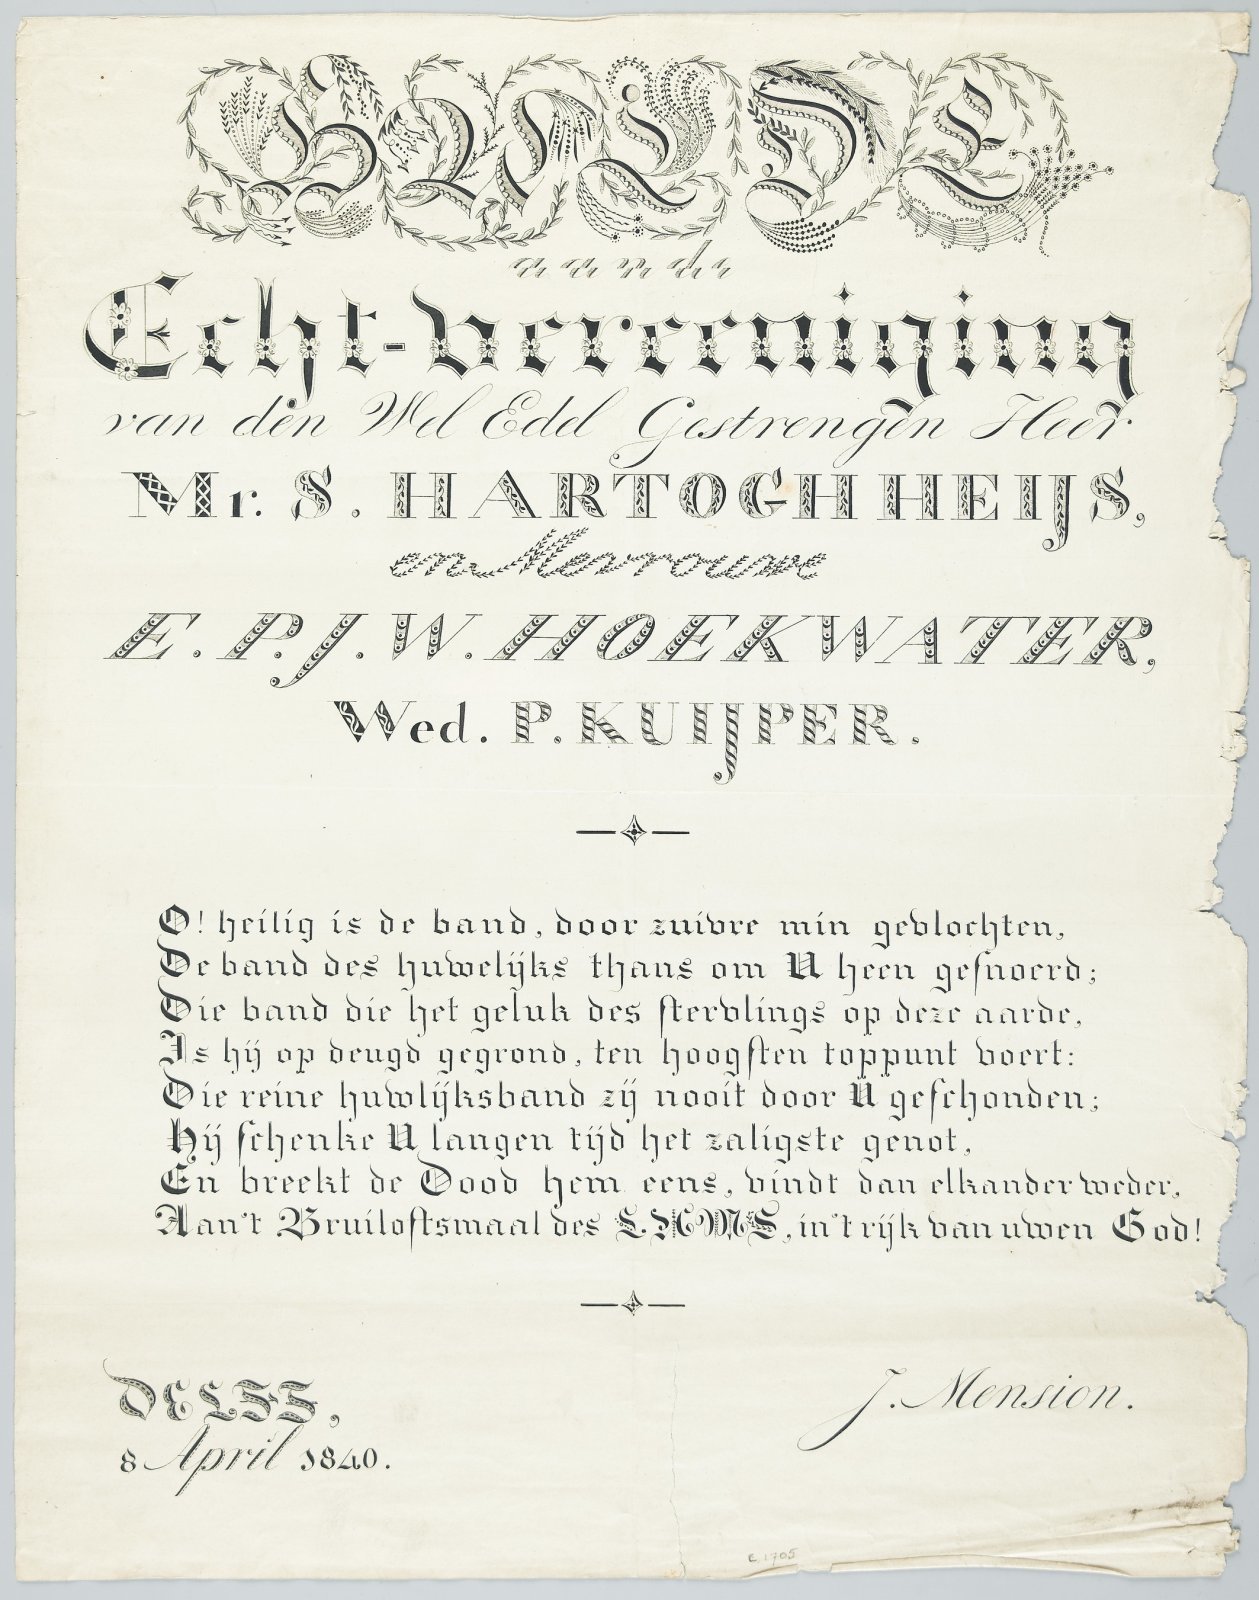 HULDE
aan de
Echt-vereeniging
van den Wel Edel Gestrengen Heer
Mr. S. HARTOGH HEIJS,
en Mevrouwe
E. P. J. W. HOEKWATER,
Wed. P. KUIJPER.
O! heilig is de band, door zuivre min gevlochten,
De band des huwelijks thans om U heen gesnoerd;
Die band die het geluk des stervlings op deze aarde,
Is hij op deugd gegrond, ten hoogsten toppunt voert:
Die reine huwlijksband zij nooit door U geschonden;
Hij schenke U langen tijd het zaligste genot,
En breekt de Dood hem eens, vindt dan elkander weder,
Aan't Bruiloftsmaal des LAMS, in't rijk van uwen God!
DELFT,
8 April 1840.
J. Mension.
E, 1705